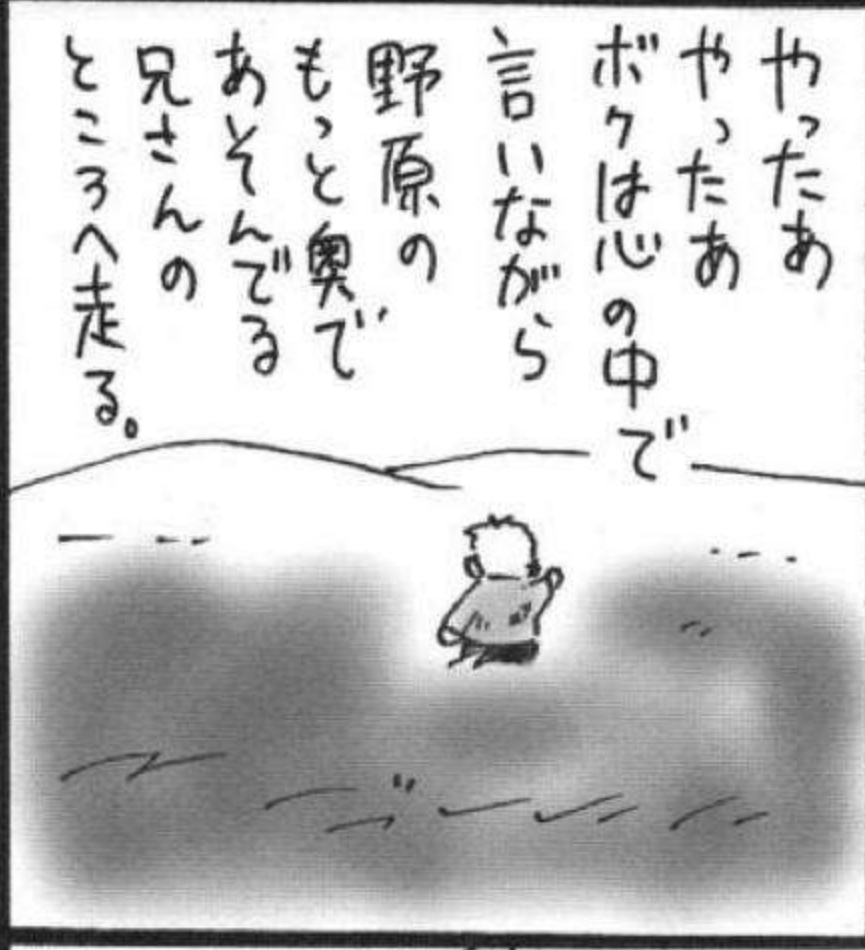 やったあ
やったあ
ボクは心の中で
言いながら
野原の
もっと奥で
あそんでる
兄さんの
ところへ走る。